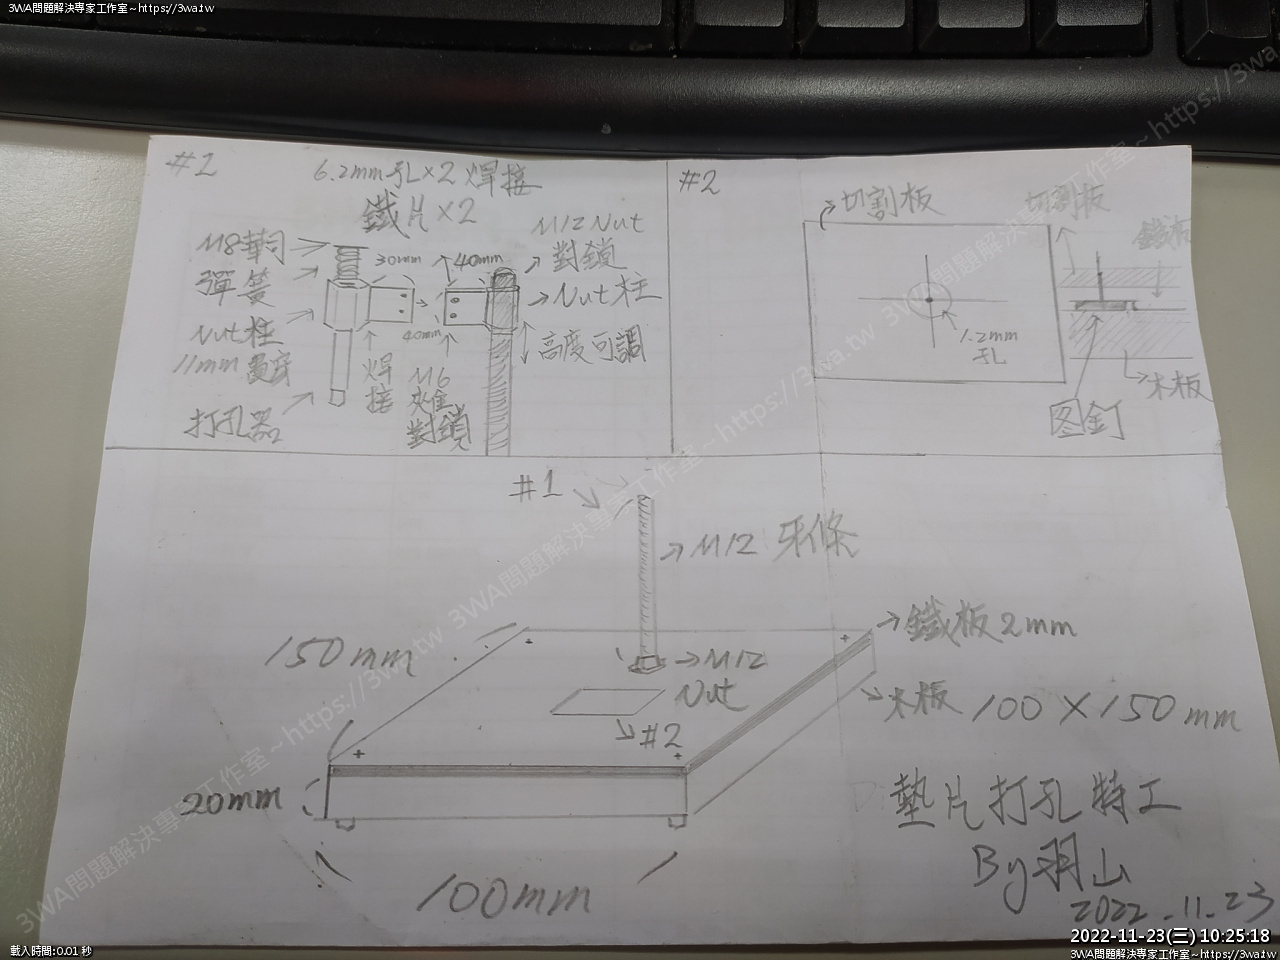 3WA問題解決專家工作室~https://3wa.tw
3WA問題解決專家工作室~https://3wa.tw
#1
6.2mm孔×2 焊接
鐵片×2
M8華司
彈簧
Nut柱
11mm 貫穿
打孔器
30mm
40mm
40mm
焊接
M6
對鎖
M12 Nut
對鎖
Nut柱
高度可調
#2
切割板
1.2mm
孔
切割板
鐵板
木板
图釘
#1
M12 牙條
M12
Nut
#2
鐵板2mm
木板 100×150mm
150mm
20mm
100mm
墊片打孔特工
By羽山
2022.11.23
2022-11-23(三) 10:25:18
載入時間:0.01 秒
3WA問題解決專家工作室~https://3wa.tw